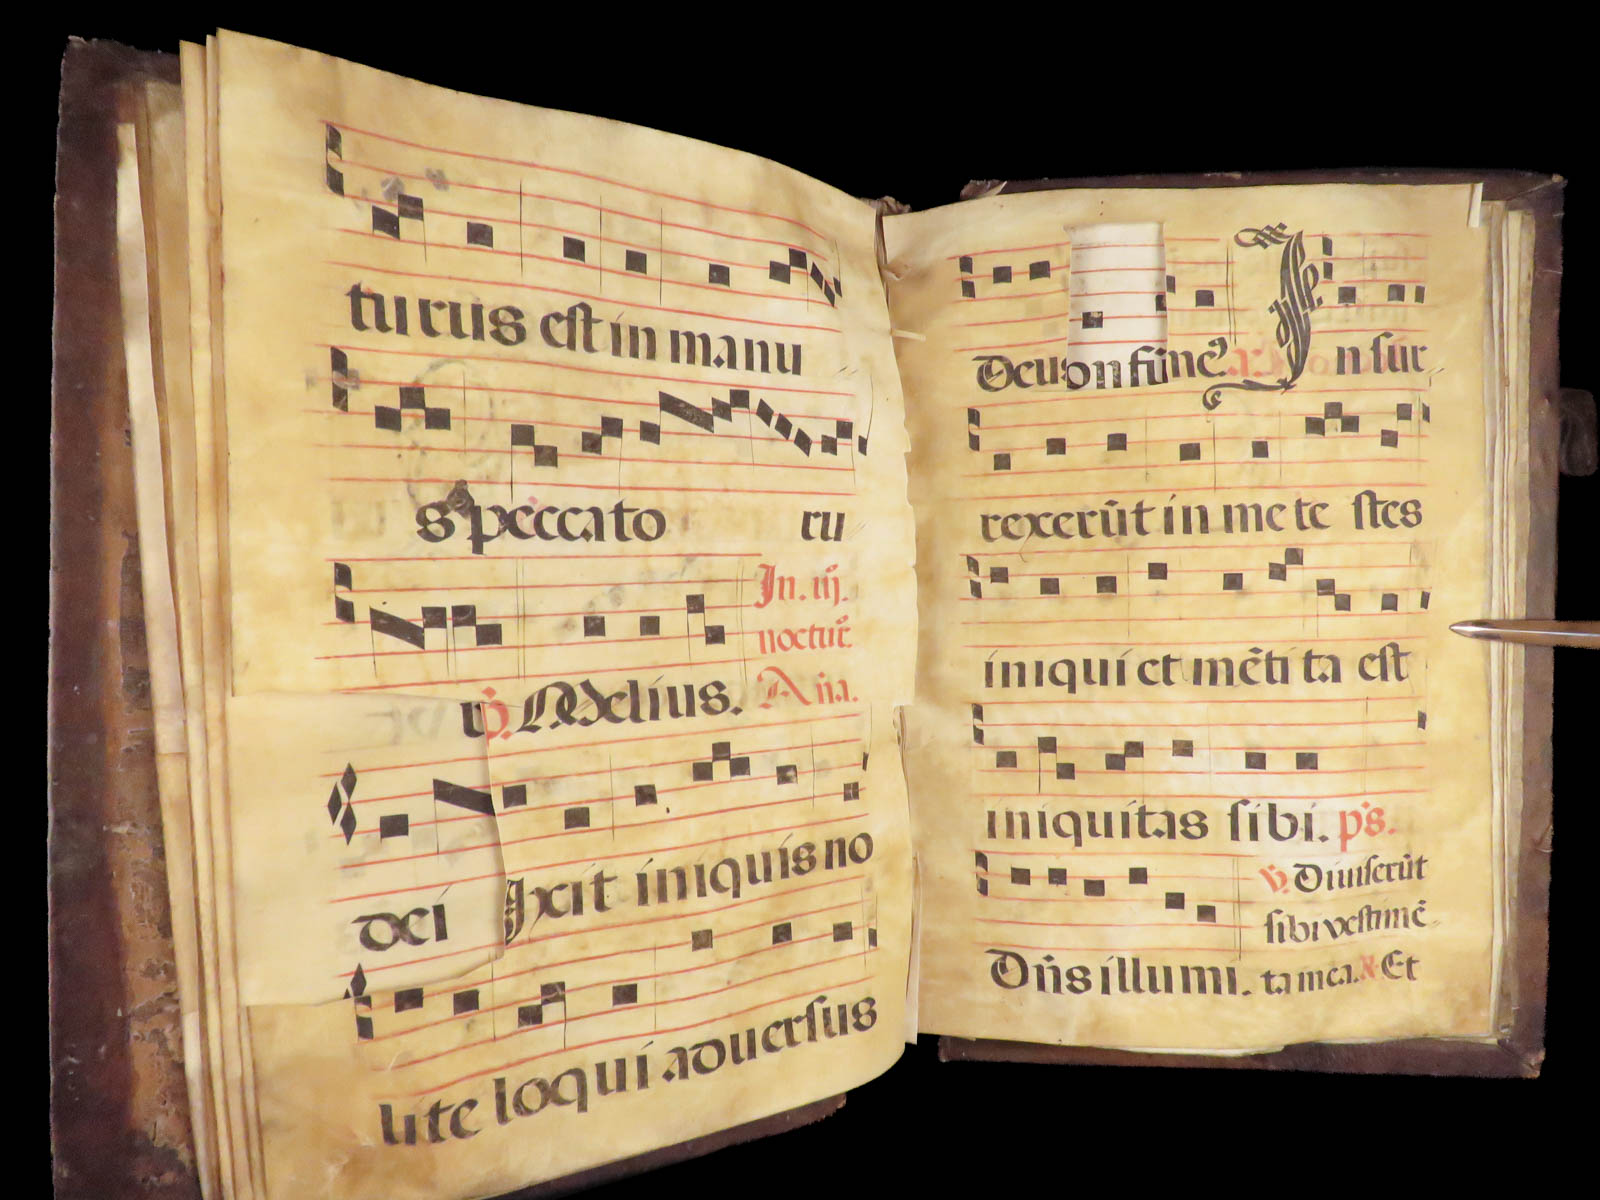 turus est in manu
s peccato ru
℣. Melius. In. iij. noctur̃. Aña.
Dixit iniquis no
dei
lite loqui aduersus
Deus on fu inc̃ In sur
rexerũt in me te stes
iniqui et mẽti ta est
iniquitas sibi. ps.
Dñs illumi. ℣. Diuiserũt
sibi vestimẽ
ta mea. Et